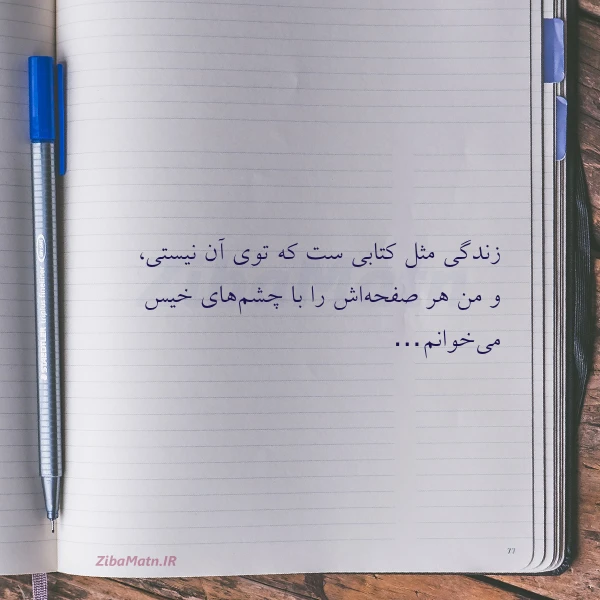 زندگی مثل کتابی ست که توی آن نیستی،
و من هر صفحه‌اش را با چشم‌های خیس
می‌خوانم...
77
ZibaMatn.IR